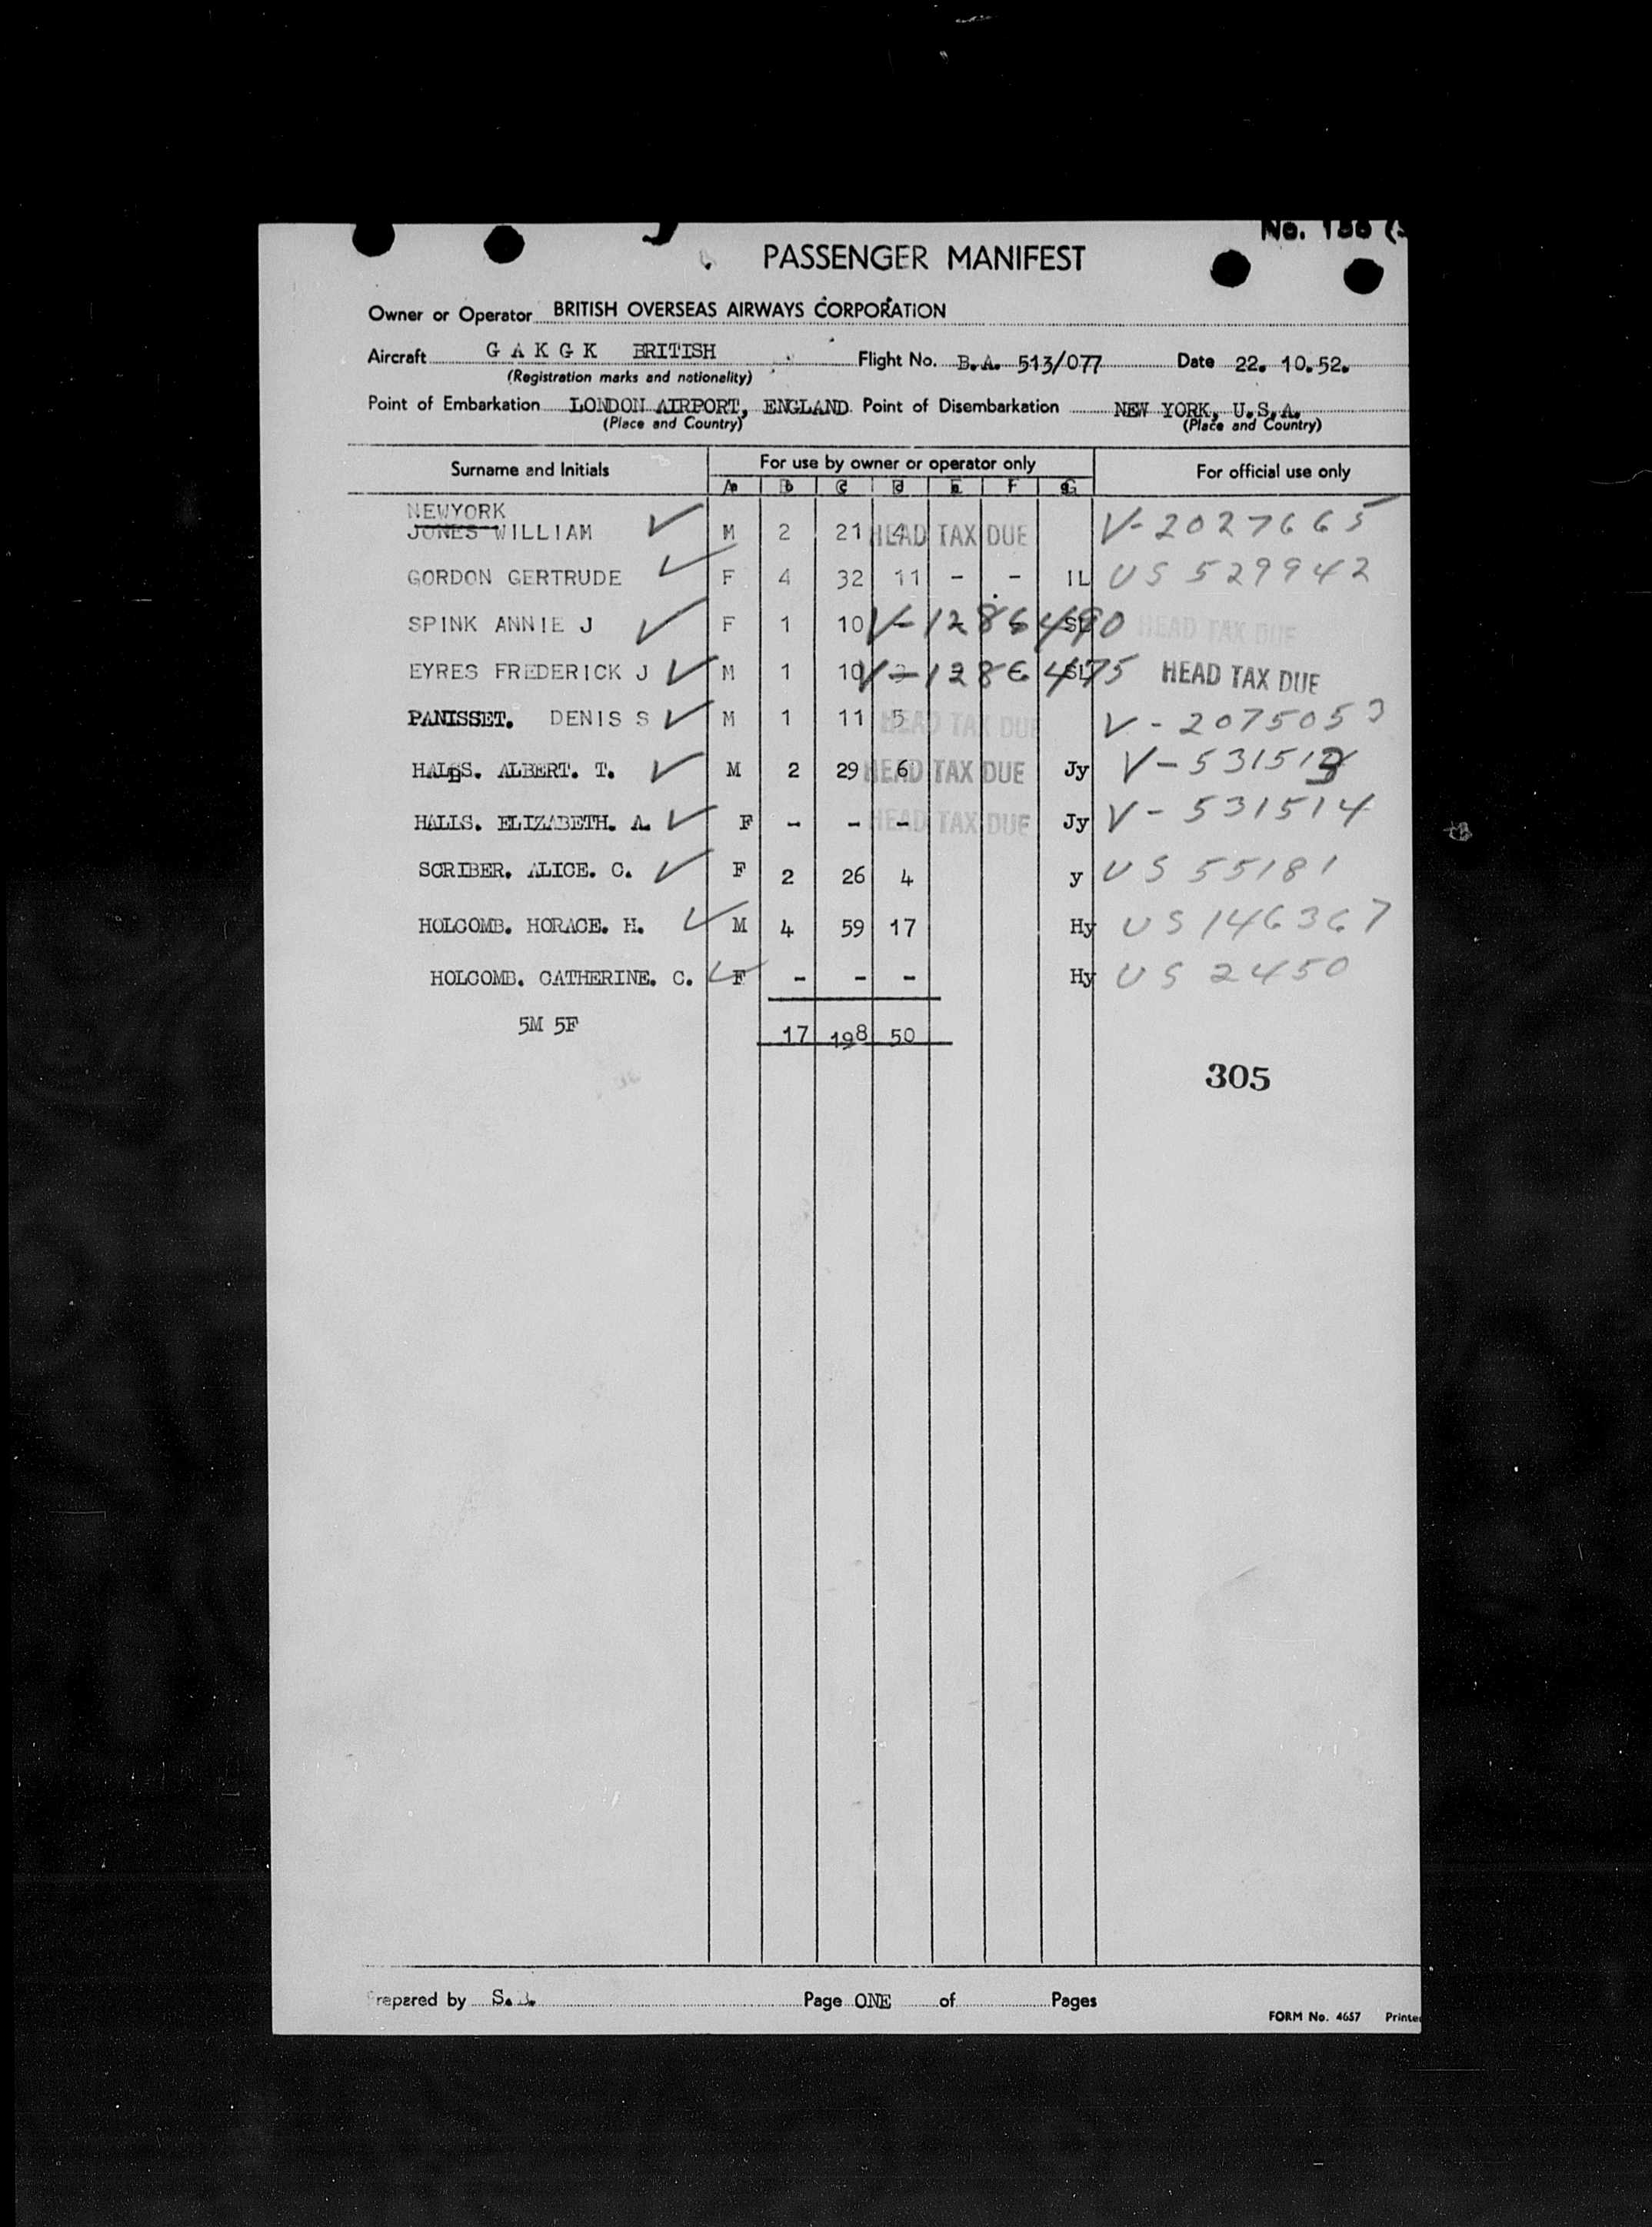 PASSENGER MANIFEST
Owner or Operator BRITISH OVERSEAS AIRWAYS CORPORATION
Aircraft G A K G K BRITISH Flight No. B.A. 513/077 Date 22. 10.52.
(Registration marks and nationality)
Point of Embarkation LONDON AIRPORT, ENGLAND. Point of Disembarkation NEW YORK, U.S.A.
(Place and Country) (Place and Country)
Surname and Initials For use by owner or operator only For official use only
A B C D E F G
NEWYORK
JONES WILLIAM M 2 21 4 HEAD TAX DUE V-2027665
GORDON GERTRUDE F 4 32 11 - - IL US 529942
SPINK ANNIE J F 1 10 V-1286490 SL HEAD TAX DUE
EYRES FREDERICK J M 1 10 V-1286475 SL HEAD TAX DUE
PANISSET. DENIS S M 1 11 5 HEAD TAX DUE V-2075053
HALLS. ALBERT. T. M 2 29 6 HEAD TAX DUE Jy V-531513
HALLS. ELIZABETH. A. F - - - HEAD TAX DUE Jy V-531514
SCRIBER. ALICE. C. F 2 26 4 y US 55181
HOLCOMB. HORACE. H. M 4 59 17 Hy US 146367
HOLCOMB. CATHERINE. C. F - - - Hy US 2450
5M 5F 17 198 50
305
Prepared by S. Page ONE of Pages
FORM No. 4657 Printed